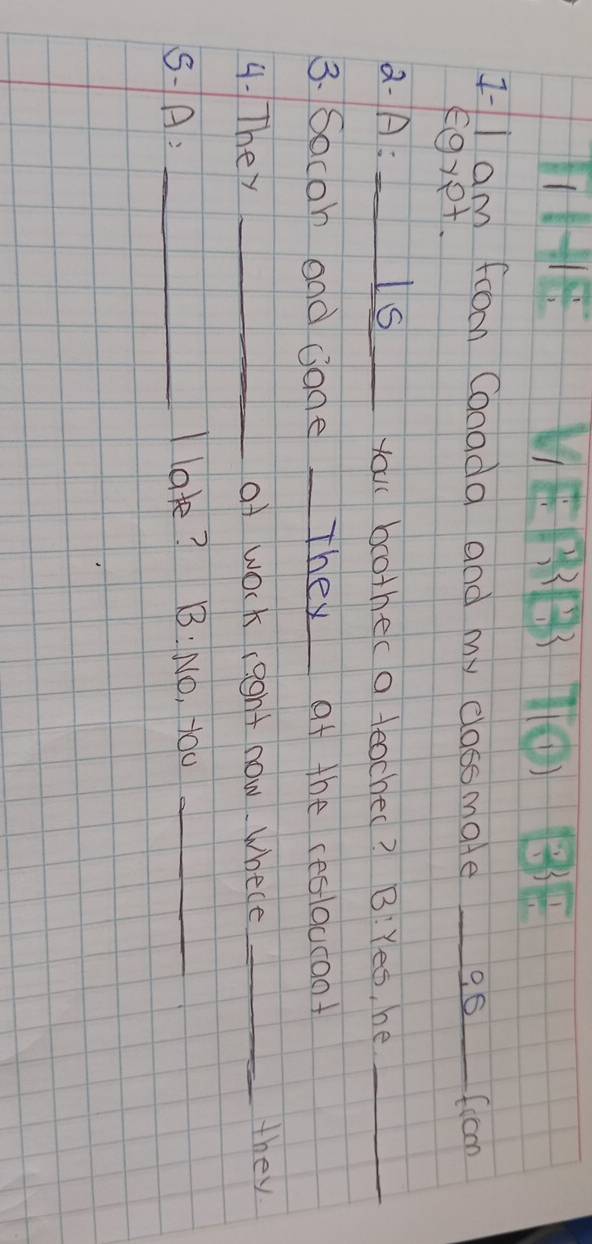 THE VERB TO BE
1- I am from Canada and my classmate ___is___ from
Egypt.
2- A: ___Is___ your brother a teacher? B: Yes, he ______
3. Sarah and Jane ___They___ at the restaurant
4. They ______ at work right now. Where ______ they
5- A: ______ I late? B: No, you ______.